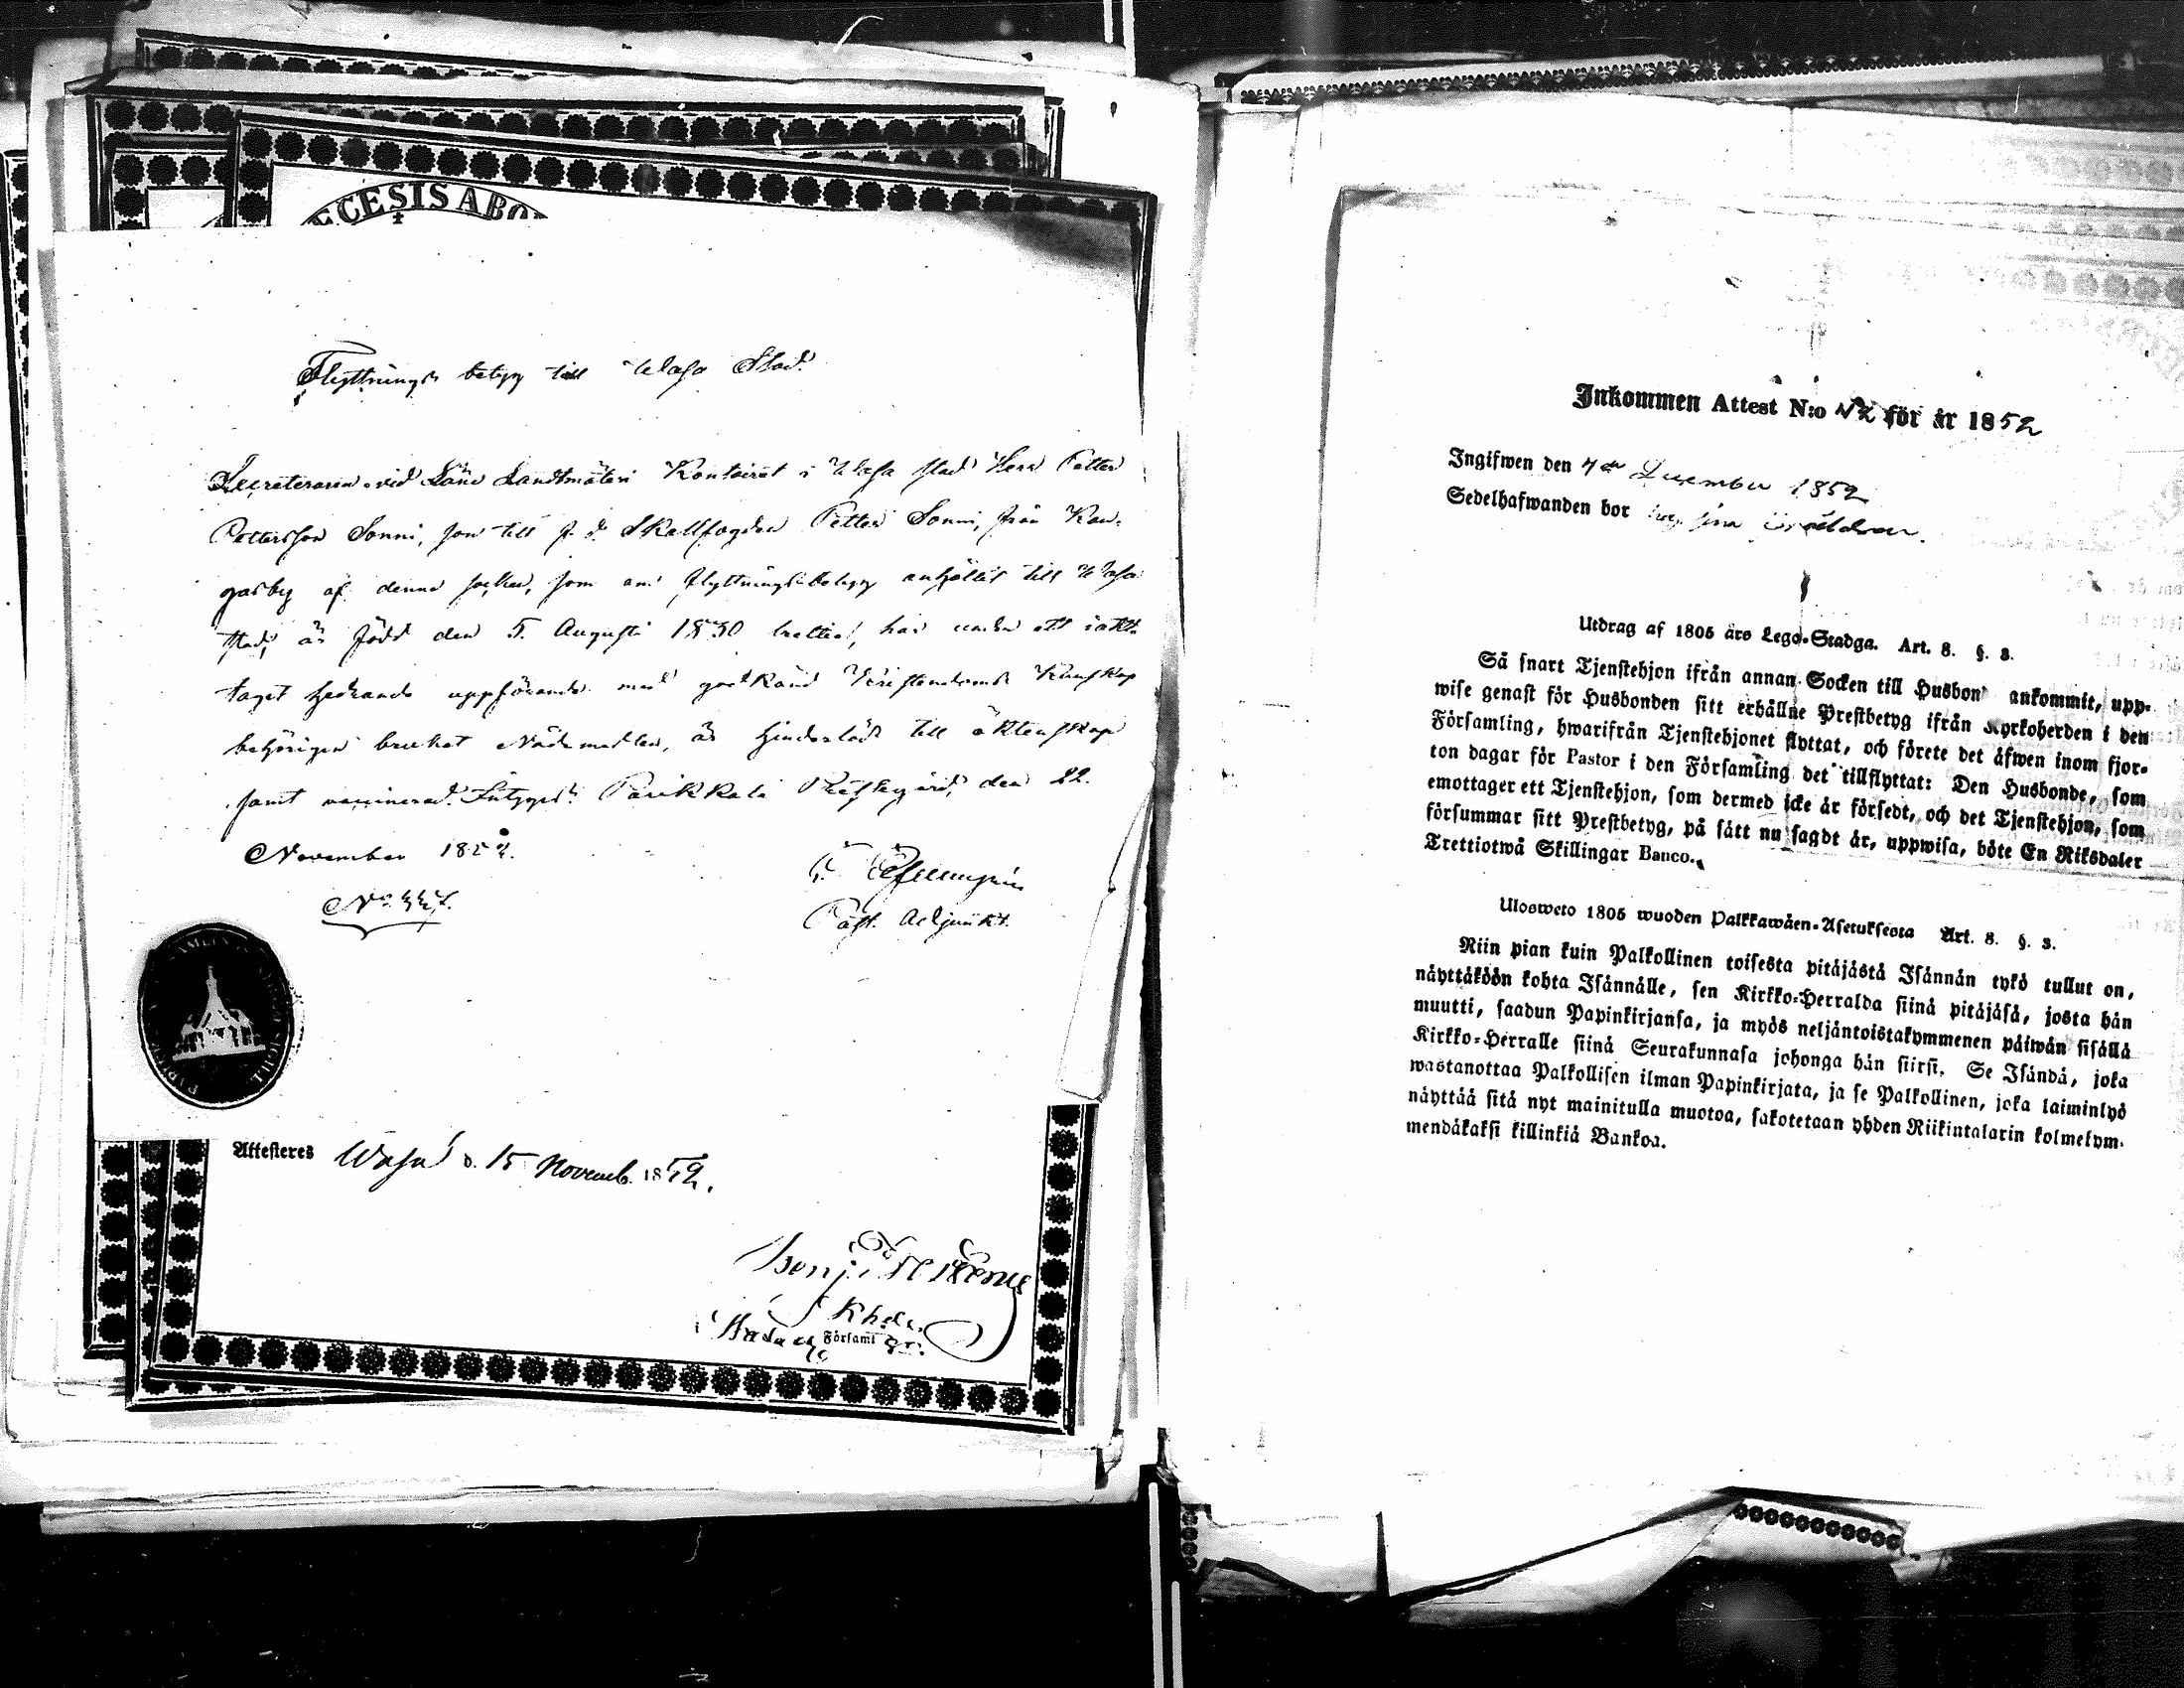 ECESIS ABO
Flyttnings betyg till Wasa Stad.
Secreteraren vid Läns Landtmäteri Kontoiret i Wasa stad Herr Petter
Pettersson Sonni, son till f. d. Skallfogden Petter Sonni, från Kan-
gasby af denna socken, som om flyttningsbetyg anhållit till Wasa
stad, är född den 5. Augusti 1830 trettio, har under ett iakt-
taget hedrande uppförande med godkänd Kristendoms Kunskap
behörigen brukat Nådemedlen, är hinderslös till äktenskap
samt vaccinerad. Intygas. Parikkala Prestgård, den 22.
November 1852.
Past. Adjunkt.
Attesteres Wasa d. 15 Novemb. 1852.
Khde.
Församl
Inkommen Attest N:o för år 1852
Ingifwen den 7de December 1852
Sedelhafwanden bor hos sina Föräldrar.
Utdrag af 1805 års Lego-Stadga. Art. 8. §. 3.
Så snart Tjenstehjon ifrån annan Socken till Husbond ankommit, upp-
wise genast för Husbonden sitt erhållne Prestbetyg ifrån Kyrkoherden i den
Församling, hwarifrån Tjenstehjonet flyttat, och förete det äfwen inom fjor-
ton dagar för Pastor i den Församling det tillflyttat: Den Husbonde, som
emottager ett Tjenstehjon, som dermed icke är försedt, och det Tjenstehjon, som
försummar sitt Prestbetyg, på sätt nu sagdt är, uppwisa, böte En Riksdaler
Trettiotwå Skillingar Banco.
Ulosweto 1805 wuoden Palkkawäen-Asetuksesta Art. 8. §. 3.
Niin pian kuin Palkollinen toisesta pitäjästä Isännän tykö tullut on,
näyttäköön kohta Isännälle, sen Kirkko-Herralda siinä pitäjäsä, josta hän
muutti, saadun Papinkirjansa, ja myös neljäntoistakymmenen päiwän sisällä
Kirkko-Herralle siinä Seurakunnasa johonga hän siirsi. Se Isändä, joka
wastanottaa Palkollisen ilman Papinkirjata, ja se Palkollinen, joka laiminlyö
näyttää sitä nyt mainitulla muotoa, sakotetaan yhden Riikintalarin kolmekym-
mendäkaksi killinkiä Bankoa.